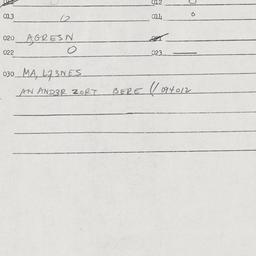 012
013 12 014 0
020 AGRESN
022 0 023
030 MA, L73NES
AN AND3R ZORT BERE // 094012